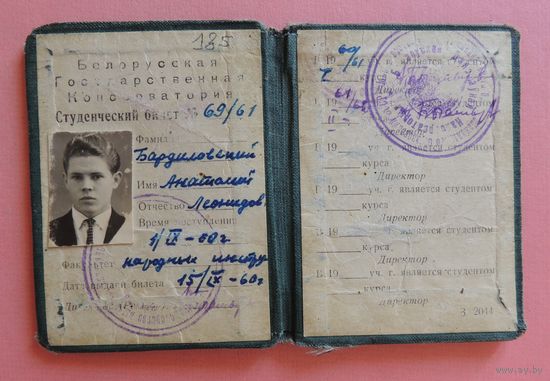 185
Белорусская
Государственная
Консерватория
Студенческий билет № 69/61
Фамил
Бардиловский
Имя Анатолий
Отчество Леонидов
Время поступления
1/IX-60г
Факультет народн инстр
Дата выдачи билета 15/IX-60г
В 19 60/61 уч. г. является студентом
Директор
61/62
Директор
В 19 уч. г. является студентом
курса
Директор
В 19 уч. г. является студентом
курса
Директор
В 19 уч. г. является студентом
курса
Директор
В 19 уч. г. является студентом
курса
Директор
З 2044
www.ay.by